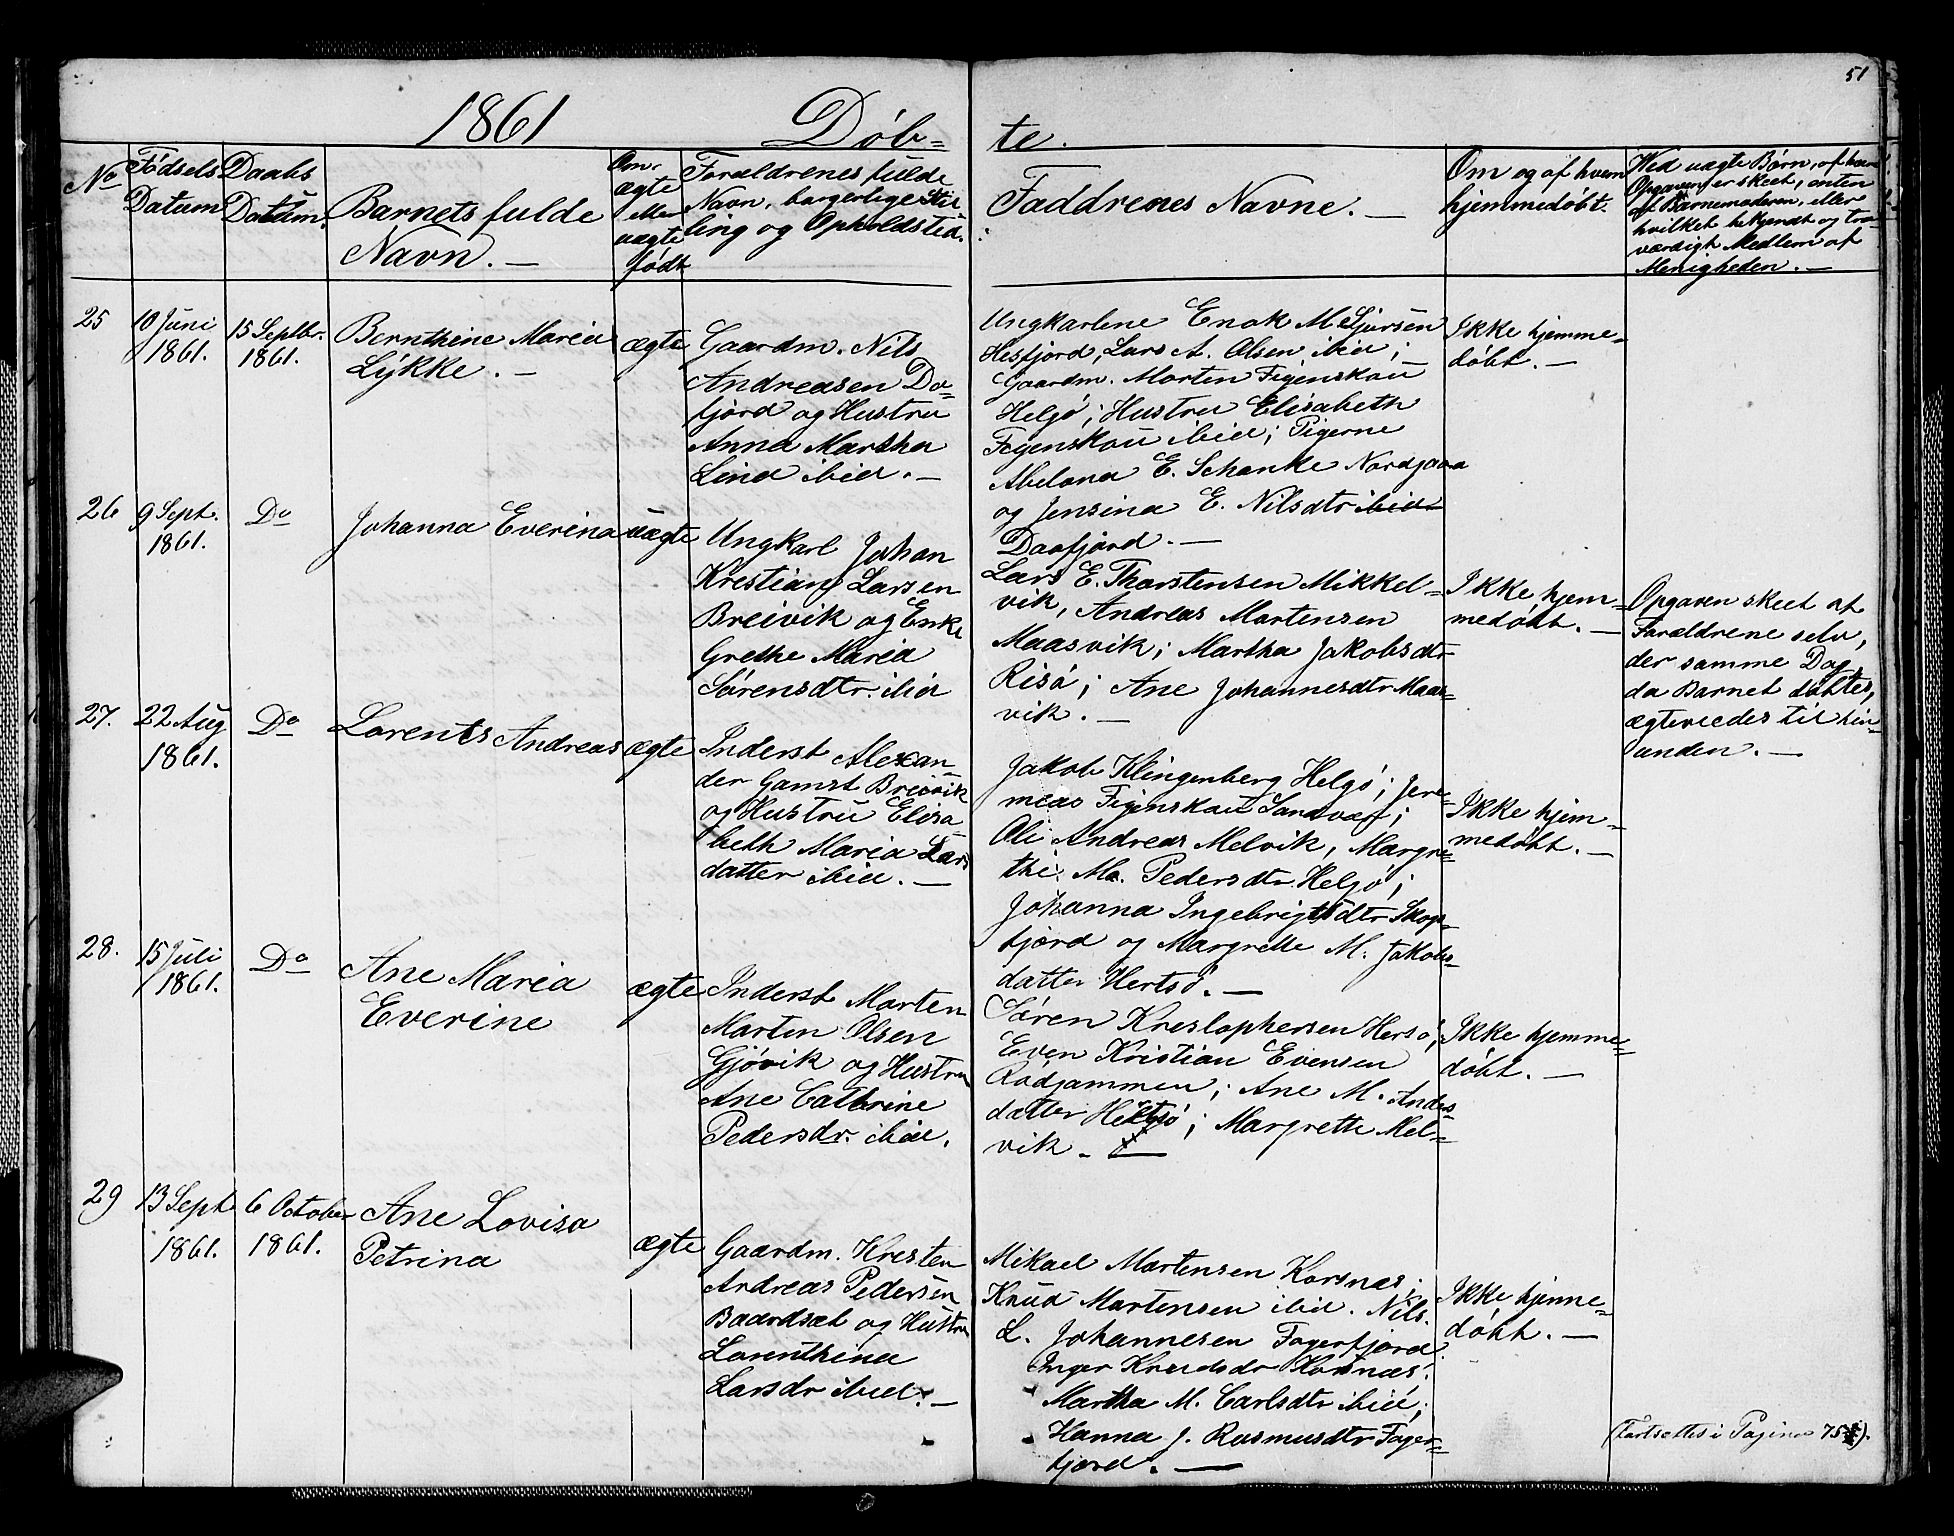 51
1861 Døb=
te.
No
Fødsels
Datum
Daabs
Datum.
Barnets fulde
Navn. —
Om
ægte
eller
uægte
født
Forældrenes fulde
Navn, borgerlige Stil
ling og Opholdsted.
Faddrenes Navne. —
Om og af hvem
hjemmedøbt.
Ved uægte Børn, af hvem
Opgaven er skeet, enten
af Barnemoderen, eller
hvilket bekjendt og tro
værdigt Medlem af
Menigheden. —
25
10 Juni
1861.
15 Septbr.
1861.
Bernthine Maria
Lykke. —
ægte
Gaardm. Nils
Andreasen Da=
fjord og Hustru
Anna Martha
Lind ibid. —
Ungkarlene Enok M. Sjursen
Hesfjord, Lars A. Olsen ibid;
Gaardm. Morten Figenskou
Helgø; Hustru Elisabeth
Figenskou ibid; Pigerne
Abelona E. Schanke Nordgaa
og Jensina E. Nilsdtr ibid
Daafjord. —
Ikke hjemme=
døbt. —
26
9 Sept.
1861.
Do
Johanna Everina
uægte
Ungkarl Johan
Kristian Larsen
Breivik og Enke
Grethe Maria
Sørensdtr. ibid
Lars E. Thorstensen Mikkel=
vik, Andreas Martensen
Maasvik; Martha Jakobsdtr
Risø; Ane Johannesdtr Maas=
vik. —
Ikke hjem=
medøbt. —
Opgaven skeet af
Forældrene selv,
der samme Dag,
da Barnet døbtes,
ægteviedes til hin=
anden. —
27.
22 Aug
1861.
Do
Lorents Andreas
ægte
Inderst Alexan=
der Gamst Breivik
og Hustru Elisa
beth Maria Lars
datter ibid. —
Jakob Klingenberg Helgø; Jere=
mias Figenskou Sandvær;
Ole Andreas Melvik, Margre=
the. Ma. Pedersdtr Helgø;
Johanna Ingebrigtsdtr Skogs=
fjord og Margrethe M. Jakobs=
datter Hertsø. —
Ikke hjem=
medøbt. —
28.
15 Juli
1861.
Do
Ane Maria
Everine
ægte
Inderst Morten
Martin Olsen
Gjøvik og Hustru
Ane Cathrine
Pedersdr. ibid.
Søren Kristophersen Hersø,
Even Kristian Evensen
Rødgammen; Ane M. Anders=
datter Hertsø; Margrethe Mel=
vik. —
Ikke hjemme=
døbt. —
29
13 Sept
1861.
6 October
1861.
Ane Lovisa
Petrina
ægte
Gaardm. Kresten
Andreas Pedersen
Baardset og Hustru
Lorenthina
Larsdr ibid. —
Mikael Martensen Korsnæs;
Knud Martensen ibid. Nils.
L. Johannesen Fagerfjord
Inger Knudsdr Korsnæs;
Martha M. Carlsdtr ibid;
Hanna J. Rasmusdtr Fager=
fjord. —
Ikke hjemme=
døbt. —
(Fortsættes i Pagina 75).